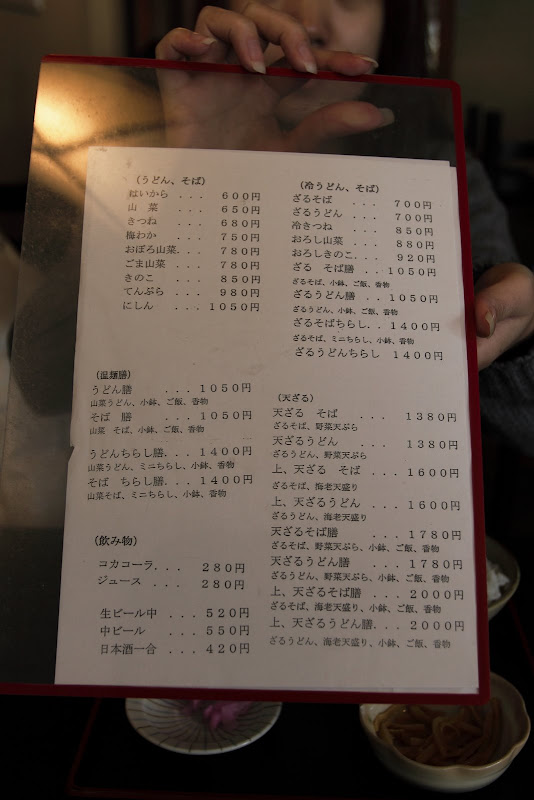 (うどん、そば)
はいから ... 600円
山 菜 ... 650円
きつね ... 680円
梅わか ... 750円
おぼろ山菜... 780円
ごま山菜 ... 780円
きのこ ... 850円
てんぷら ... 980円
にしん ... 1050円
(温麺膳)
うどん膳 ... 1050円
山菜うどん、小鉢、ご飯、香物
そば 膳 ... 1050円
山菜 そば、小鉢、ご飯、香物
うどんちらし膳... 1400円
山菜うどん、ミニちらし、小鉢、香物
そば ちらし膳... 1400円
山菜そば、ミニちらし、小鉢、香物
(飲み物)
コカコーラ... 280円
ジュース ... 280円
生ビール中 ... 520円
中ビール ... 550円
日本酒一合 ... 420円
(冷うどん、そば)
ざるそば ... 700円
ざるうどん ... 700円
冷きつね ... 850円
おろし山菜 ... 880円
おろしきのこ.. 920円
ざる そば膳 .. 1050円
ざるそば、小鉢、ご飯、香物
ざるうどん膳 .. 1050円
ざるうどん、小鉢、ご飯、香物
ざるそばちらし.. 1400円
ざるそば、ミニちらし、小鉢、香物
ざるうどんちらし 1400円
(天ざる)
天ざる そば ... 1380円
ざるそば、野菜天ぷら
天ざるうどん ... 1380円
ざるうどん、野菜天ぷら
上、天ざる そば ... 1600円
ざるそば、海老天盛り
上、天ざるうどん ... 1600円
ざるうどん、海老天盛り
天ざるそば膳 ... 1780円
ざるそば、野菜天ぷら、小鉢、ご飯、香物
天ざるうどん膳 ... 1780円
ざるうどん、野菜天ぷら、小鉢、ご飯、香物
上、天ざるそば膳 ... 2000円
ざるそば、海老天盛り、小鉢、ご飯、香物
上、天ざるうどん膳... 2000円
ざるうどん、海老天盛り、小鉢、ご飯、香物